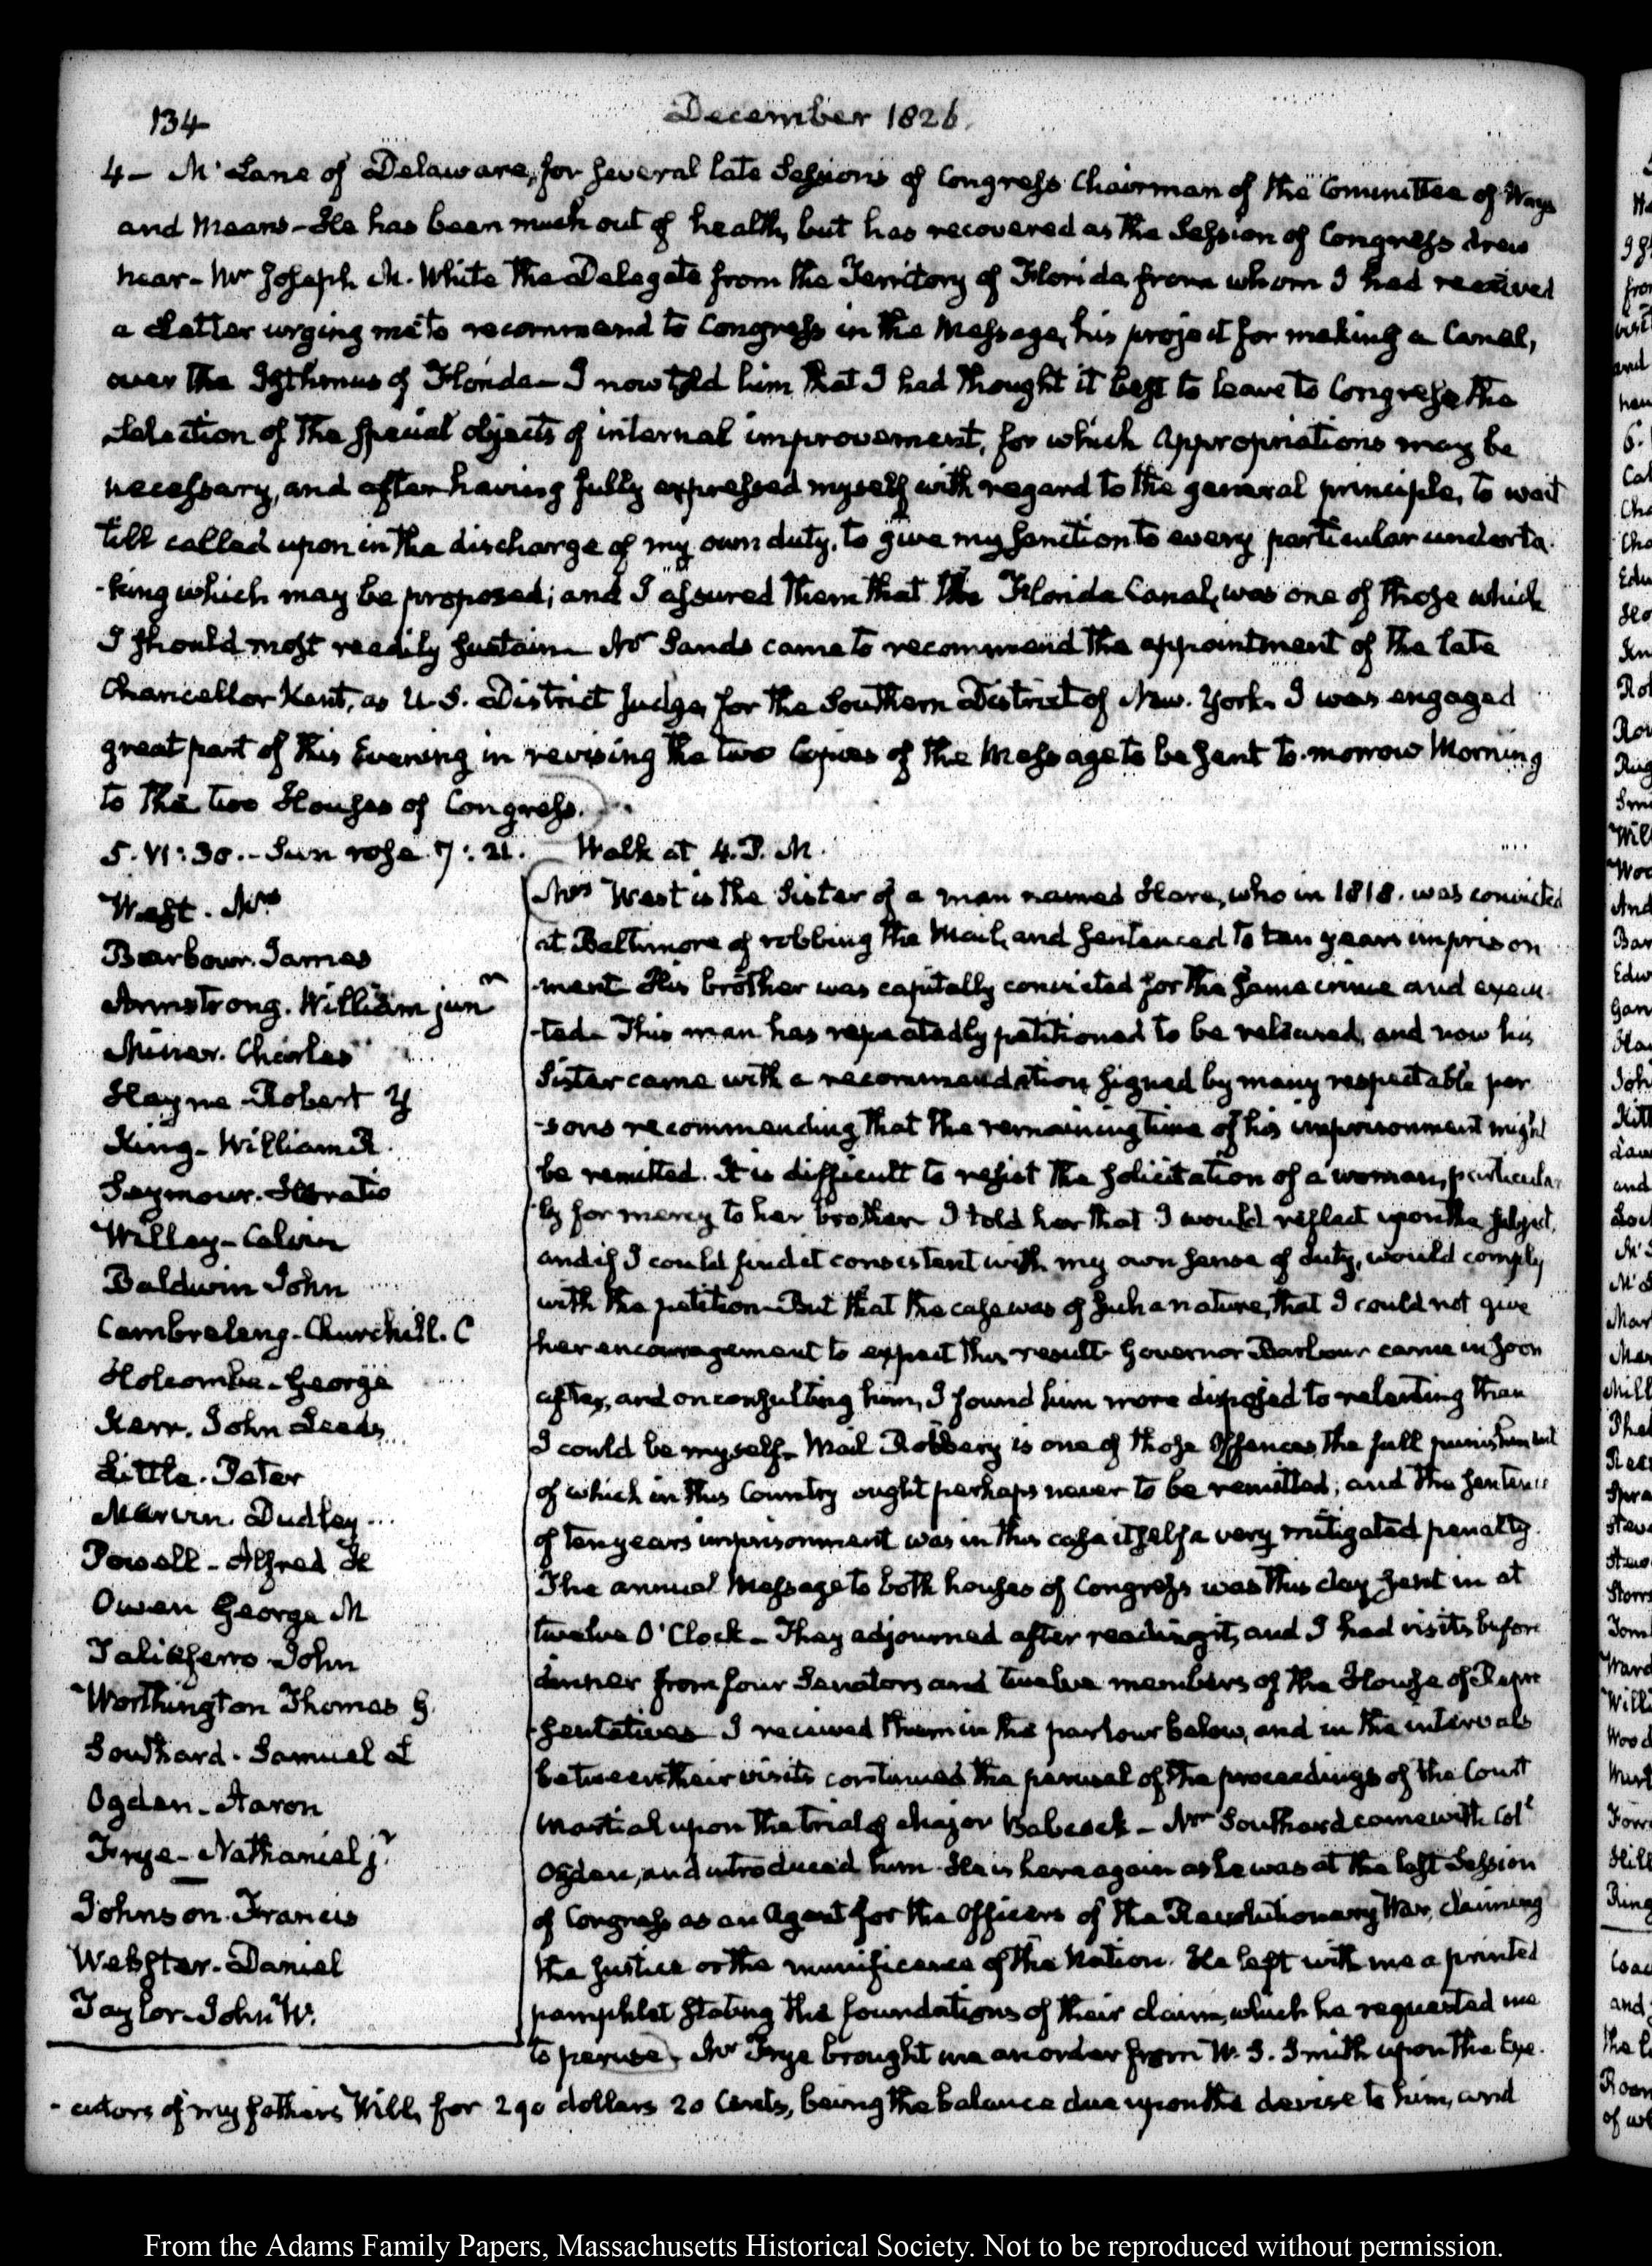 134
December 1826.
4 – McLane of Delaware, for several late Sessions of Congress Chairman of the Committee of Ways
and Means – He has been much out of health, but has recovered as the Session of Congress drew
near – Mr Joseph M. White the Delegate from the Territory of Florida, from whom I had received
a Letter urging me to recommend to Congress in the Message, his project for making a Canal,
over the Isthmus of Florida – I now told him that I had thought it best to leave to Congress the
Selection of the special objects of internal improvement, for which appropriations may be
necessary, and after having fully expressed myself with regard to the general principle, to wait
till called upon in the discharge of my own duty, to give my sanction to every particular underta-
-king which may be proposed; and I assured them that the Florida Canal, was one of those which
I should most readily sustain – Mr Sands came to recommend the appointment of the late
Chancellor Kent, as U.S. District Judge, for the Southern District of New-York. I was engaged
great part of this Evening in revising the two Copies of the Message to be sent to-morrow Morning
to the two Houses of Congress.
5. VI:30. – Sun rose 7:21. – Walk at 4. P. M.
West. Mrs
Barbour. James
Armstrong. William junr
Miner. Charles
Hayne – Robert Y
King – William R.
Seymour. Horatio
Willey – Calvin
Baldwin John
Cambreleng – Churchill. C
Holcombe – George
Kerr. John Leeds
Little. Peter
Marvin. Dudley
Powell – Alfred H
Owen George M
Taliaferro John
Worthington Thomas G.
Southard – Samuel L
Ogden – Aaron
Frye – Nathaniel jr
Johnson. Francis
Webster. Daniel
Taylor – John W.
Mrs West is the Sister of a man named Hare, who in 1818. was convicted
at Baltimore of robbing the Mail, and sentenced to ten years imprison
-ment His brother was capitally convicted for the same crime and execu-
-ted – This man has repeatedly petitioned to be released, and now his
Sister came with a recommendation signed by many respectable per
-sons recommending that the remaining time of his imprisonment might
be remitted. It is difficult to resist the solicitation of a woman, particular
-ly for mercy to her brother I told her that I would reflect upon the subject,
and if I could find it consistent with my own sense of duty, would comply
with the petition – But that the case was of such a nature, that I could not give
her encouragement to expect this result – Governor Barbour came in soon
after, and on consulting him, I found him more disposed to relenting than
I could be myself – Mail Robbery is one of those Offences, the full punishment
of which in this Country ought perhaps never to be remitted; and the sentence
of ten years imprisonment was in this case itself a very mitigated penalty.
The annual Message to both houses of Congress was this day sent in at
twelve O'Clock – They adjourned after reading it, and I had visits before
dinner from four Senators and twelve members of the House of Repre
-sentatives – I received them in the parlour below, and in the intervals
between their visits continued the perusal of the proceedings of the Court
Martial upon the trial of Major Babcock – Mr Southard came with Coll
Ogden, and introduced him – He is here again as he was at the last Session
of Congress as an Agent for the Officers of the Revolutionary War, claiming
the justice or the munificence of the Nation. He left with me a printed
pamphlet stating the foundations of their claim, which he requested me
to peruse. Mr Frye brought me an order from W. S. Smith upon the Exe-
-cutors of my father's Will, for 290 dollars 20 Cents, being the balance due upon the devise to him, and
From the Adams Family Papers, Massachusetts Historical Society. Not to be reproduced without permission.